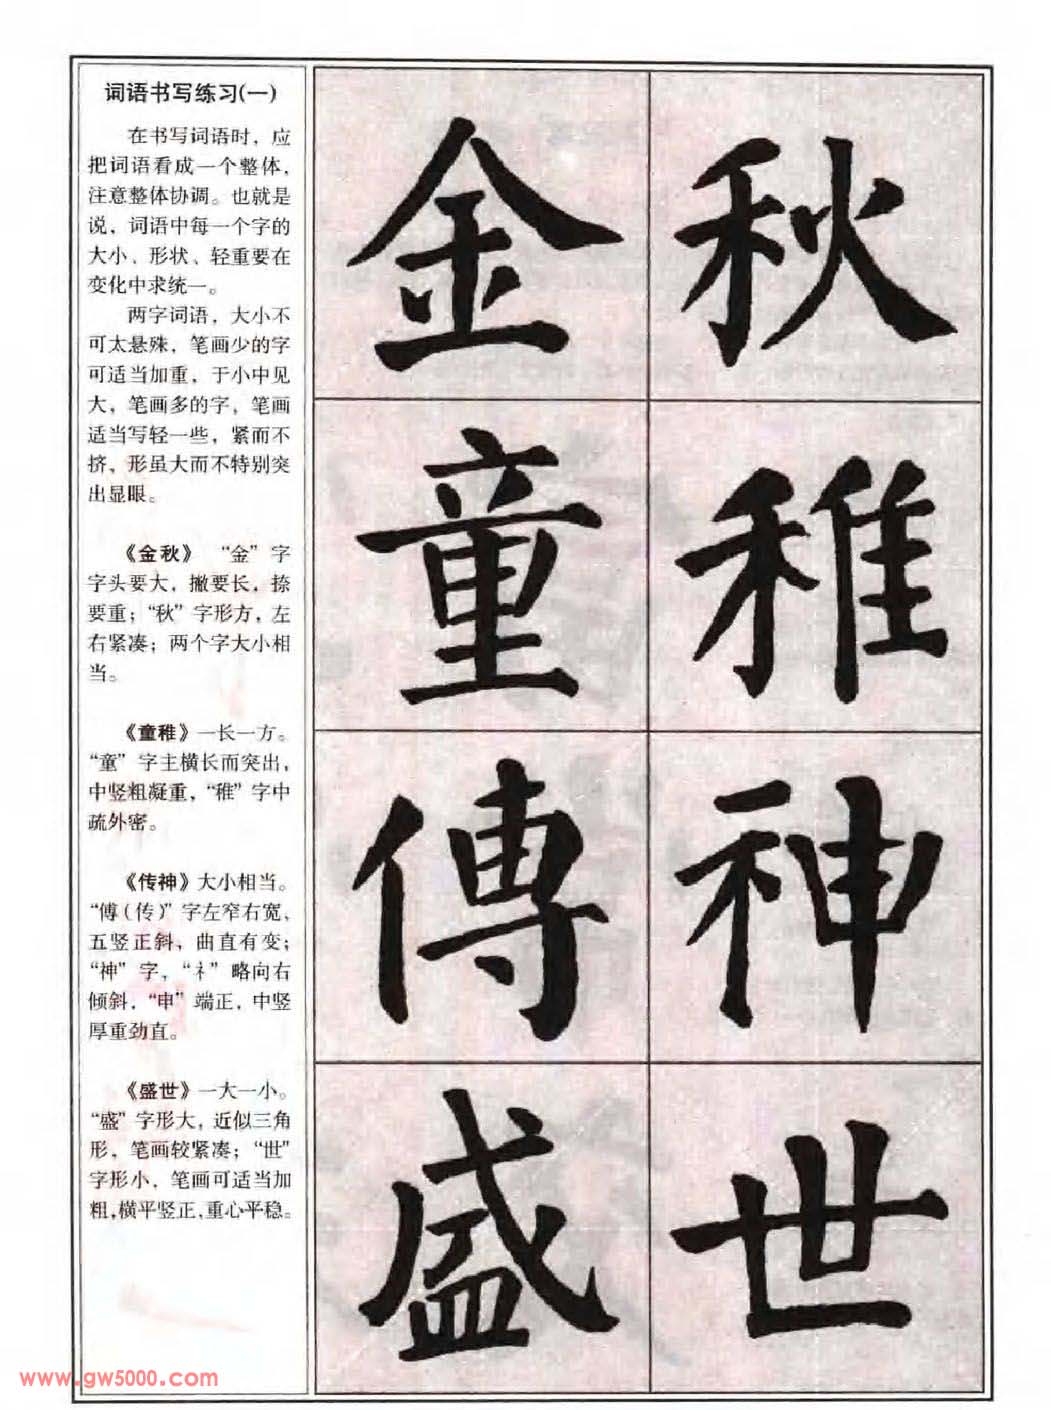 词语书写练习(一)
在书写词语时，应
把词语看成一个整体，
注意整体协调。也就是
说，词语中每一个字的
大小、形状、轻重要在
变化中求统一。
两字词语，大小不
可太悬殊，笔画少的字
可适当加重，于小中见
大，笔画多的字，笔画
适当写轻一些，紧而不
挤，形虽大而不特别突
出显眼。
《金秋》 “金”字
字头要大，撇要长，捺
要重；“秋”字形方，左
右紧凑；两个字大小相
当。
《童稚》一长一方。
“童”字主横长而突出，
中竖粗凝重，“稚”字中
疏外密。
《传神》大小相当。
“傳(传)”字左窄右宽、
五竖正斜，曲直有变；
“神”字，“礻”略向右
倾斜，“申”端正，中竖
厚重劲直。
《盛世》一大一小。
“盛”字形大，近似三角
形，笔画较紧凑；“世”
字形小，笔画可适当加
粗，横平竖正，重心平稳。
金秋
童稚
傳神
盛世
www.gw5000.com